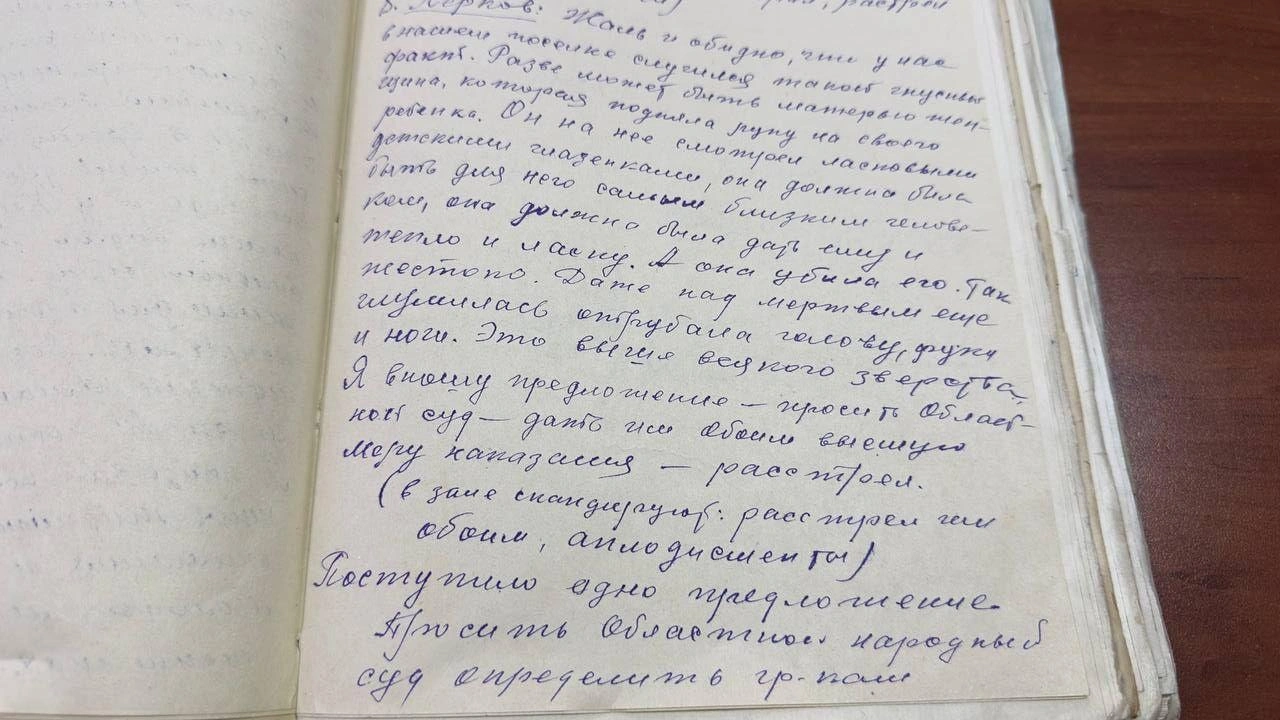 расстрел
Жаль и обидно, что у нас
в нашем поселке случился такой гнусный
факт. Разве может быть матерью жен-
щина, которая подняла руку на своего
ребенка. Он на нее смотрел ласковыми
детскими глазенками, она должна была
быть для него самым близким челове-
ком, она должна была дать ему и
тепло и ласку. А она убила его. Так
жестоко. Даже над мертвым еще
глумилась отрубала голову, руки
и ноги. Это выше всякого зверства.
Я вношу предложение — просить Област-
ной суд — дать им обоим высшую
меру наказания — расстрел.
(в зале скандируют: расстрел им
обоим, аплодисменты)
Поступило одно предложение.
Просить Областной народный
суд определить гр-кам